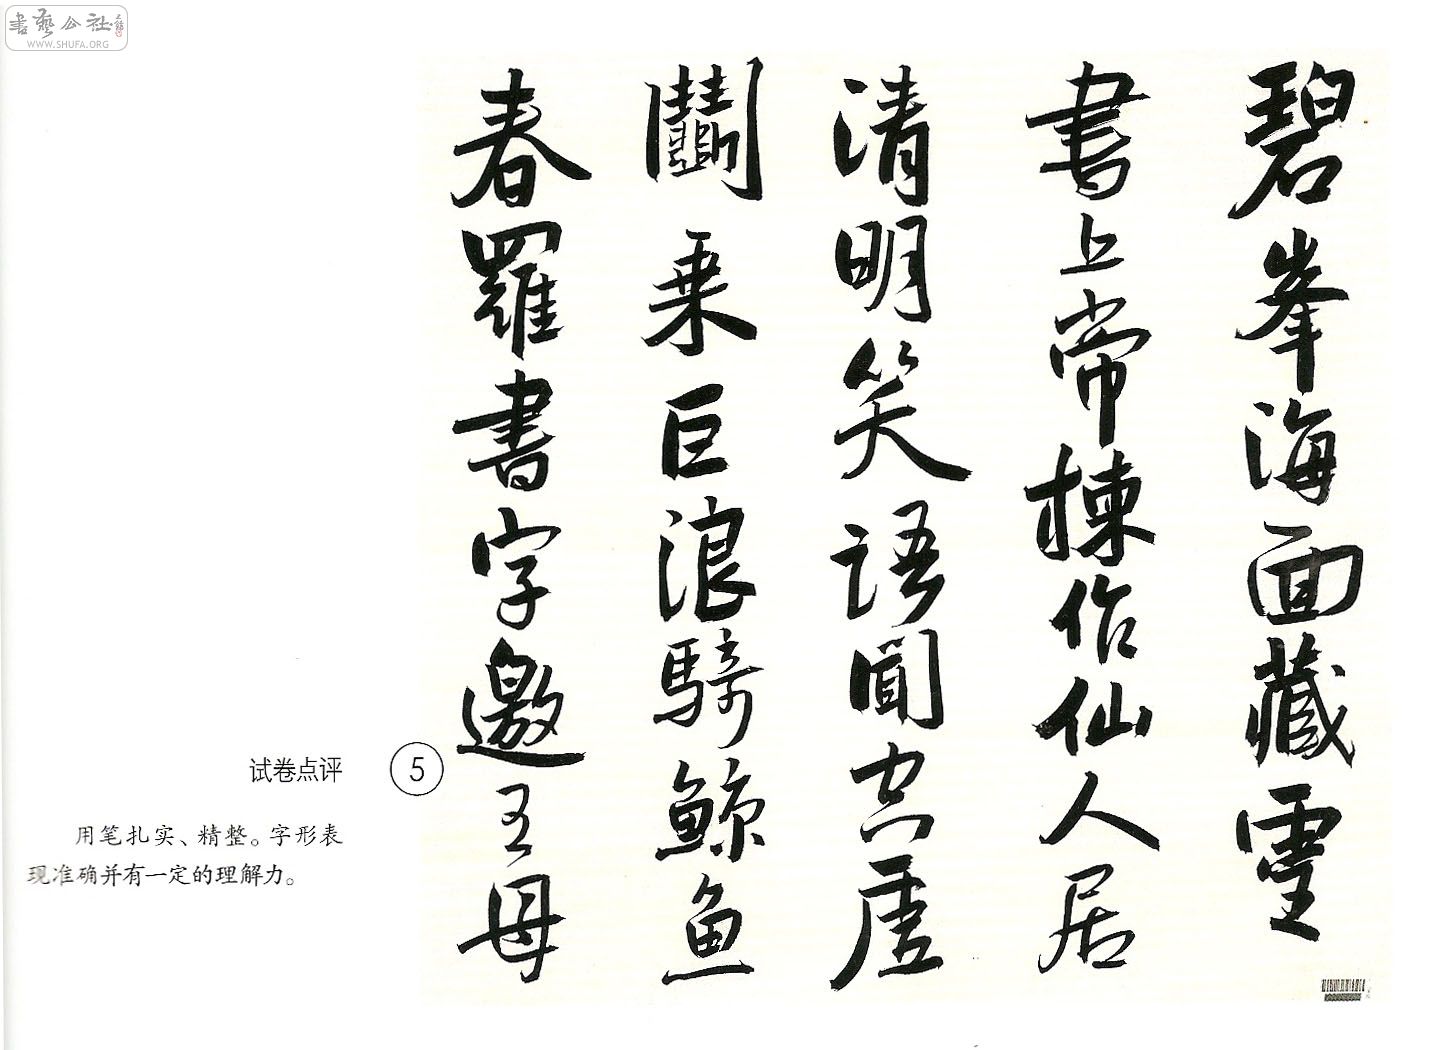 書藝公社
WWW.SHUFA.ORG
碧峯海面藏靈
書上帝揀作仙人居
清明笑語聞空虛
鬭乘巨浪騎鯨魚
春羅書字邀王母
试卷点评
5
用笔扎实、精整。字形表
现准确并有一定的理解力。